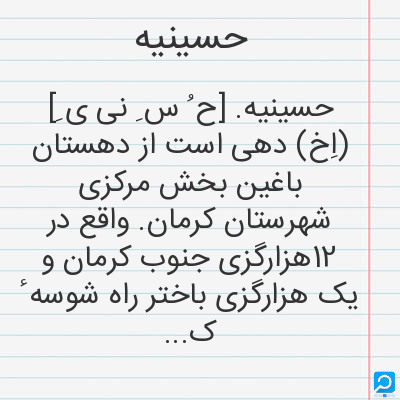 حسینیه
حسینیه. [ح ُ س ِ نی ی ِ]
(اِخ) دهی است از دهستان
باغین بخش مرکزی
شهرستان کرمان. واقع در
۱۲هزارگزی جنوب کرمان و
یک هزارگزی باختر راه شوسه ٔ
ک...